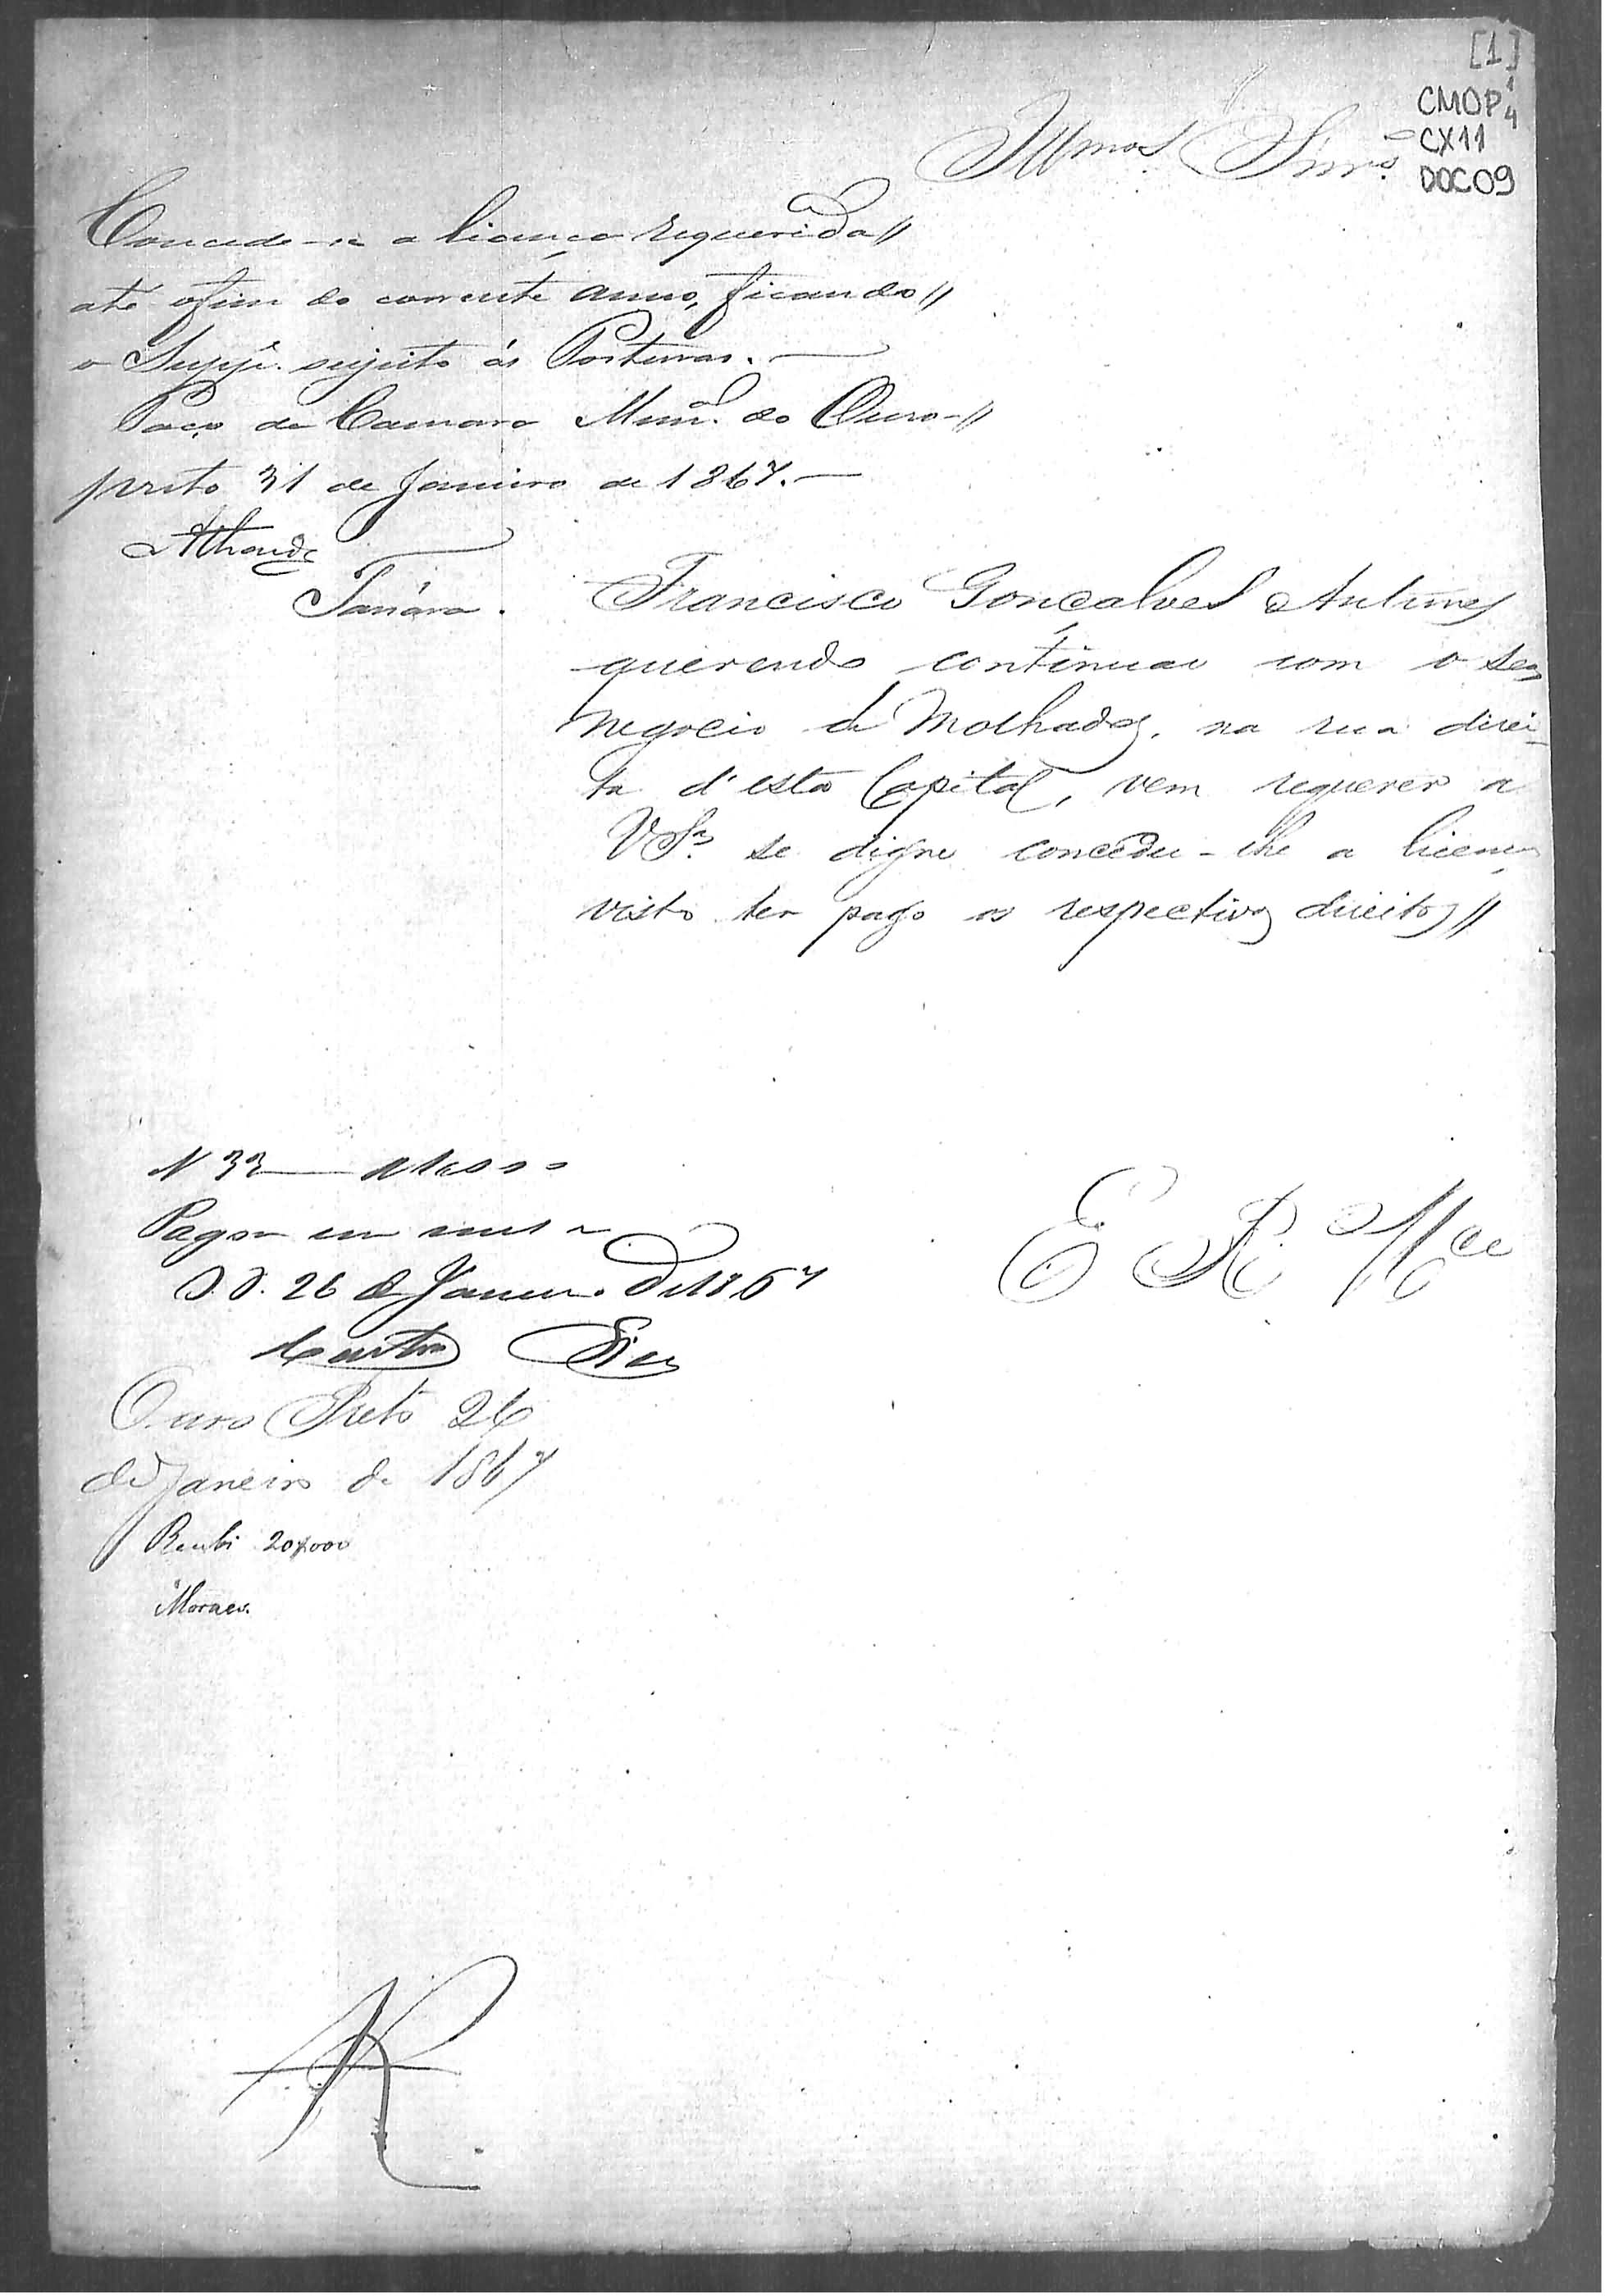 [1]
CMOP 1
4
CX11
DOC 09
Illmos. Snrs.
Concede-se a licença requerida//
até o fim do corrente anno, ficando//
o Suppe. sujeito ás Posturas.—
Paço da Camara Munal. do Ouro-//
preto 31 de Janeiro de 1867.—
Francisco Gonçalves Antunes
querendo continuar com o seu
negocio de Molhados, na rua direi-
ta d'esta Capital, vem requerer a
VSas. se digne conceder-lhe a licença
visto ter pago os respectivos direitos//
N 33
Pagou
26 de Janeiro de 1867
E R Mce
Ouro Preto 26
de Janeiro de 1867
Recebi 20$000
Moraes.